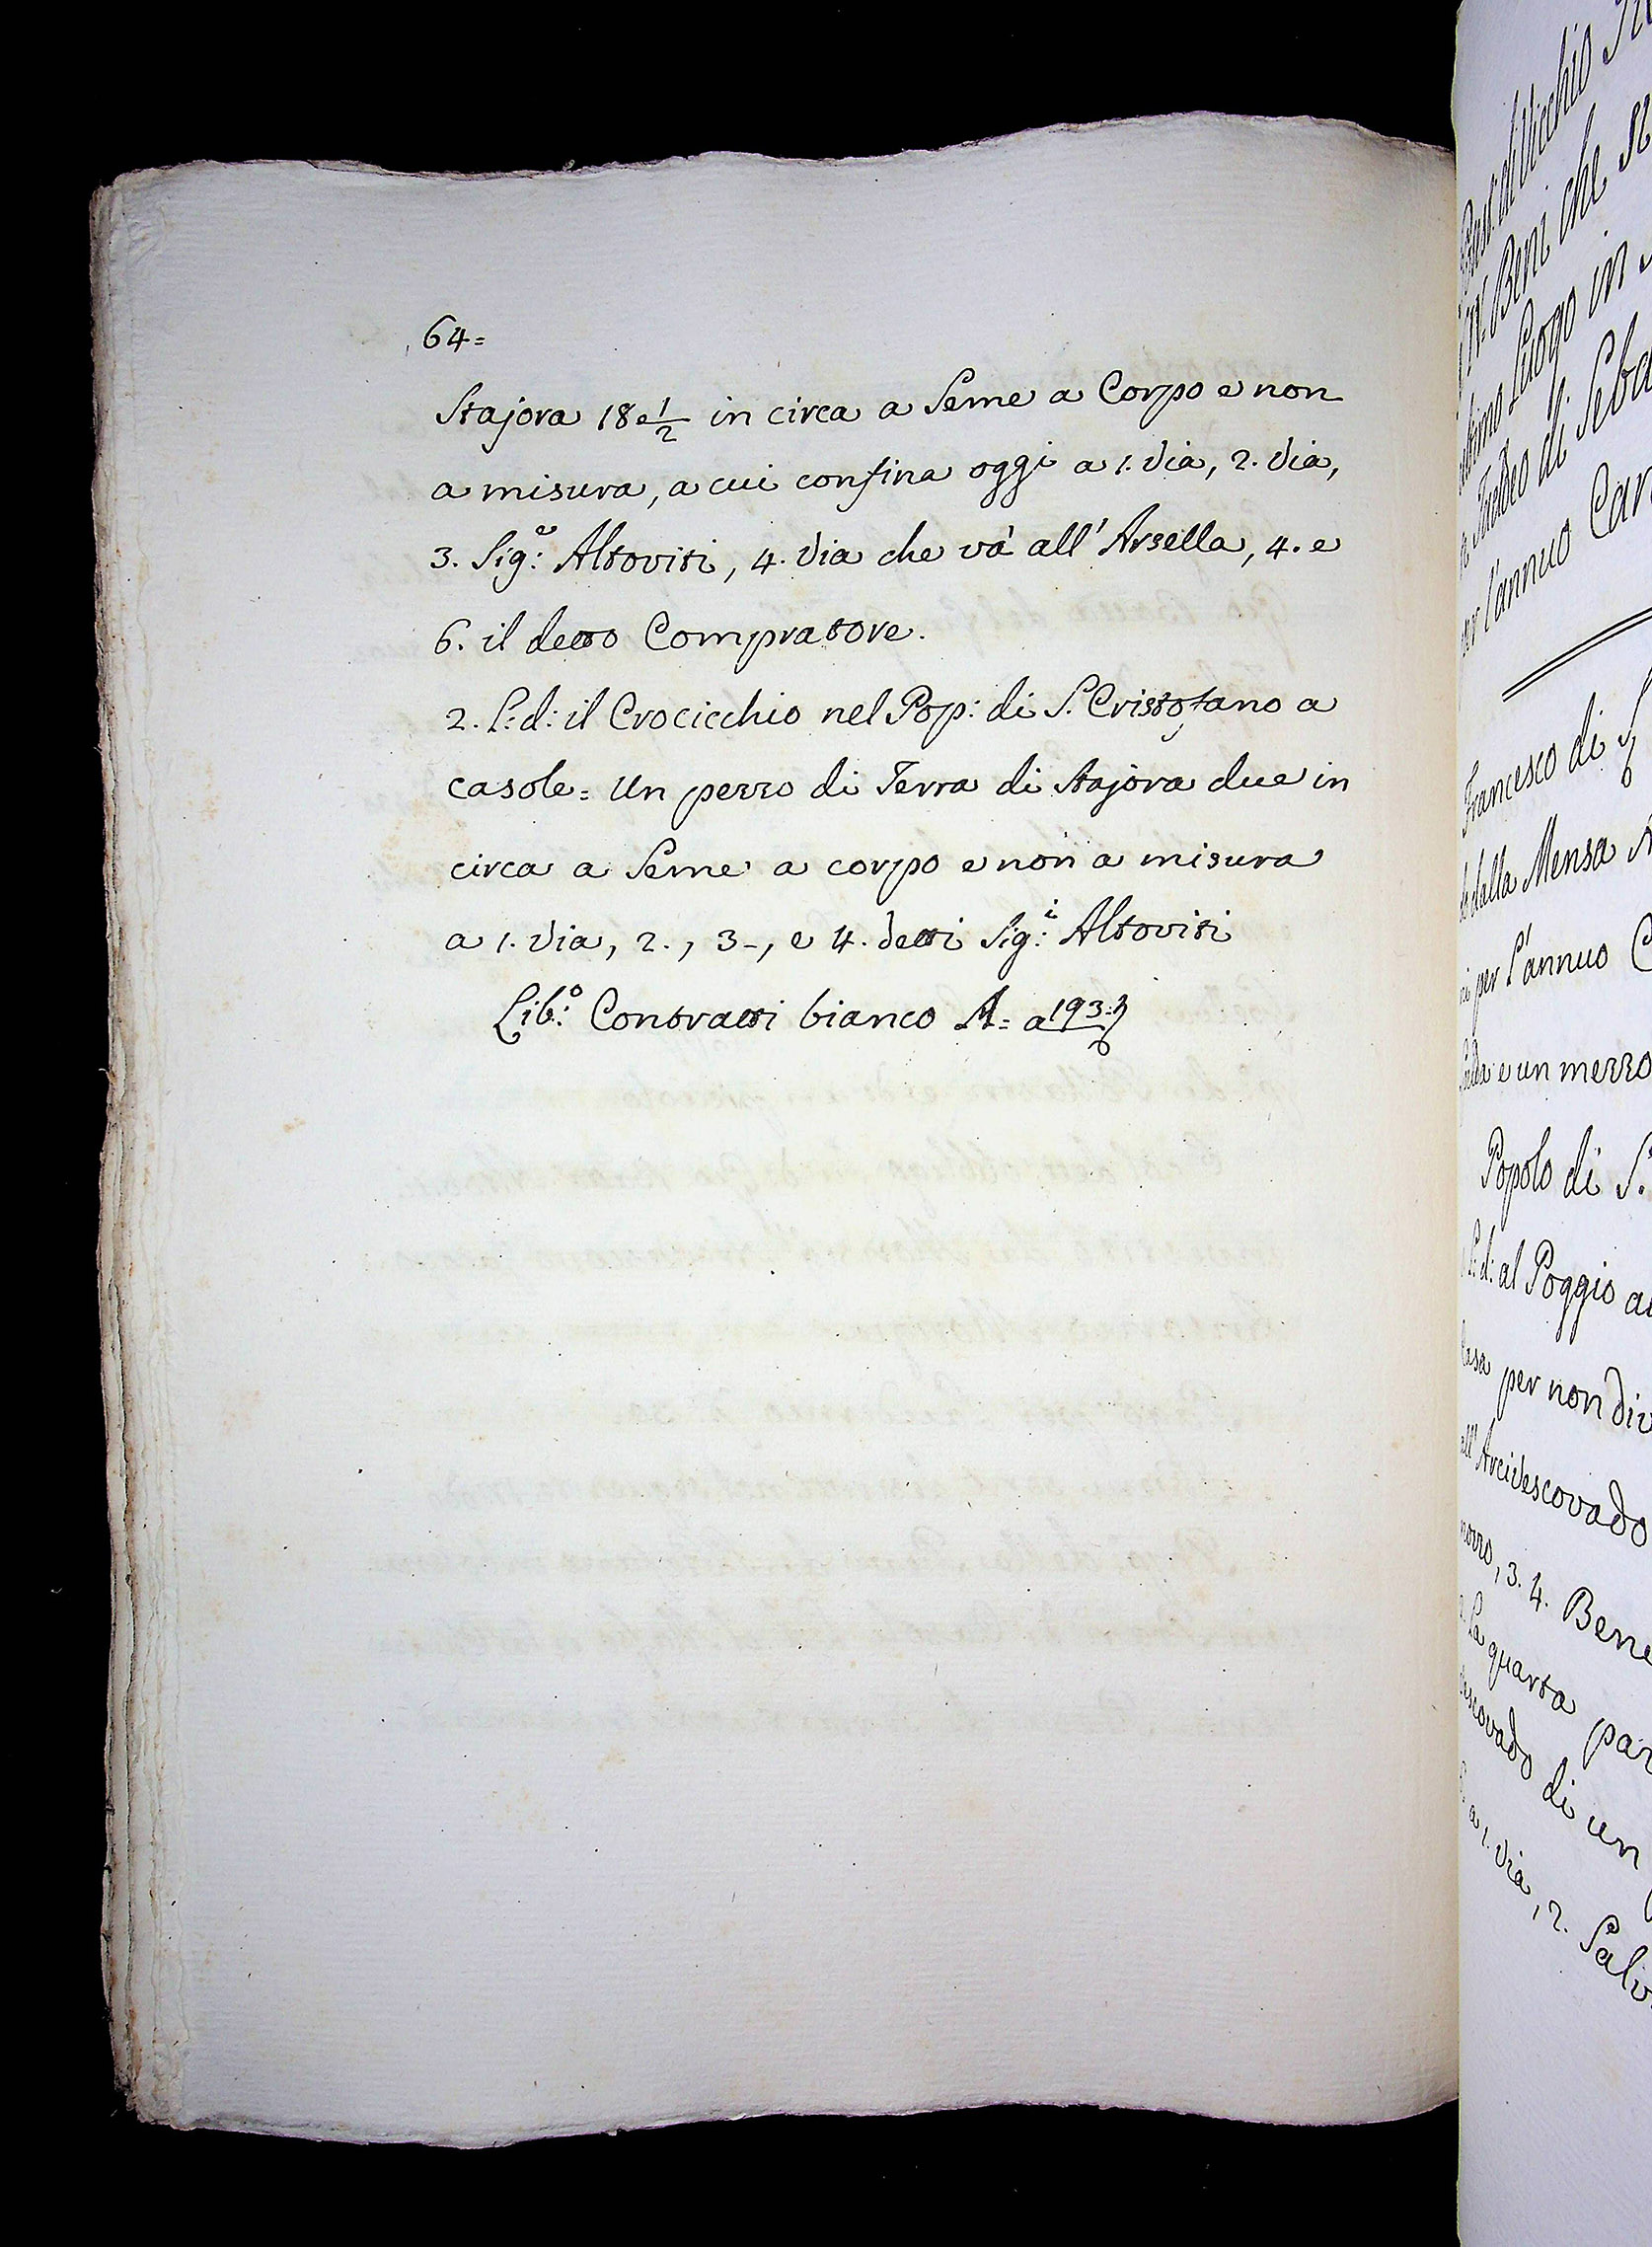 64=
Stajora 18 e 1/2 in circa a Seme a Corpo e non
a misura, a cui confina oggi a 1. Via, 2. Via,
3. Sig:e Altoviti, 4. Via che và all' Arsella, 4. e
6. il detto Compratore.
2. L: d: il Crocicchio nel Pop: di S. Cristofano a
casole= Un pezzo di Terra di Stajora due in
circa a Seme a corpo e non a misura
a 1. Via, 2., 3-, e 4. detti Sig:i Altoviti
Lib:o Contratti bianco A= a 193:
di Vicchio
N. Beni che
Luogo in
Taddeo di Seba
l'annuo Can
Francesco di
dalla Mensa
per l'annuo C
e un mezzo
Popolo di S.
L: d: al Poggio
per non div
all' Arcivescovado
3. 4. Bene
La quarta par
di un
a 1. Via, 2. Salv